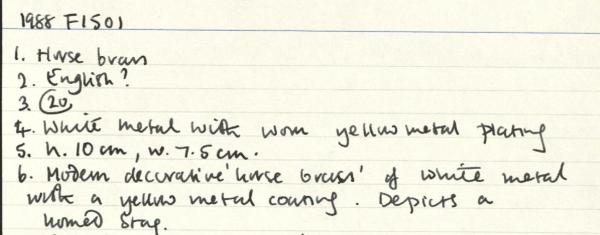 1988 F1501
1. Horse brass
2. English?
3. 20
4. White metal with worn yellow metal plating
5. h. 10 cm, w. 7.5 cm.
6. Modern decorative 'horse brass' of white metal
with a yellow metal coating. Depicts a
horned stag.